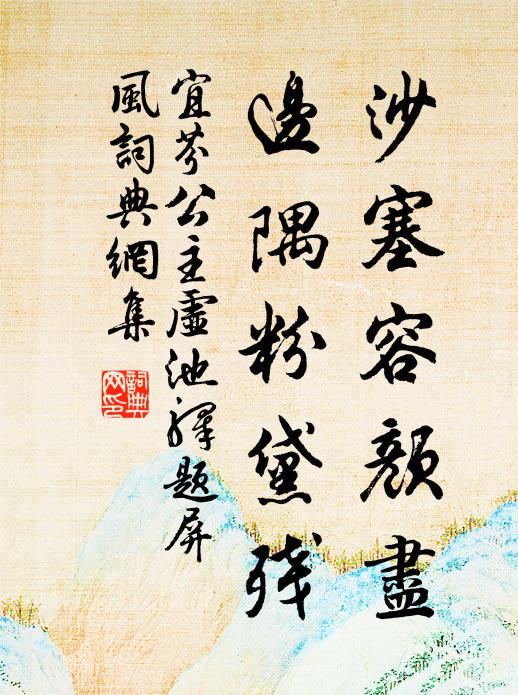 沙塞容顏盡
邊隅粉黛殘
宜芬公主虛池驛題屏
風詞典網集
詞典
网印